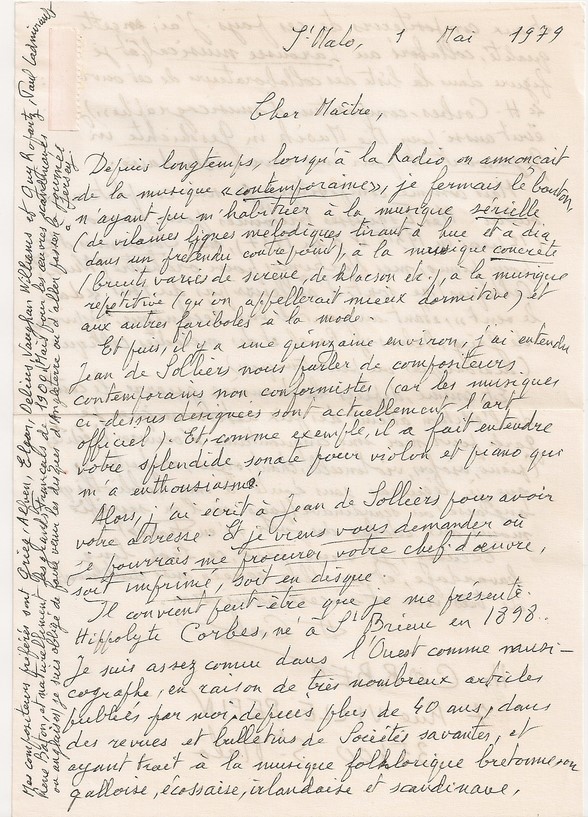 St Malo, 1 Mai 1979
Cher Maître,
Depuis longtemps, lorsqu'à la Radio, on annonçait
de la musique «contemporaine», je fermais le bouton,
n'ayant pu m'habituer à la musique sérielle
(de vilaines lignes mélodiques tirant à hue et à dia
dans un prétendu contrepoint), à la musique concrète
(bruits variés de sirène, de klacson etc.), à la musique
répétitive (qu'on appellerait mieux dormitive) et
aux autres fariboles à la mode.
Et puis, il y a une quinzaine environ, j'ai entendu
Jean de Solliers nous parler de compositeurs
contemporains non conformistes (car les musiques
ci-dessus désignées sont actuellement l'art
officiel). Et, comme exemple, il a fait entendre
votre splendide sonate pour violon et piano qui
m'a enthousiasmé.
Alors, j'ai écrit à Jean de Solliers pour avoir
votre adresse. Et je viens vous demander où
je pourrais me procurer votre chef d'œuvre,
soit imprimé, soit en disque.
Il convient peut-être que je me présente.
Hippolyte Corbes, né à St Brieuc en 1898.
Je suis assez connu dans l'Ouest comme musi-
cographe, en raison de très nombreux articles
publiés par moi, depuis plus de 40 ans, dans
des revues et bulletins de Sociétés savantes, et
ayant trait à la musique folklorique bretonne,
galloise, écossaise, irlandaise et scandinave,
Mes compositeurs préférés sont Grieg, Alfven, Elgar, Delius, Vaughan Williams et Guy Ropartz, Paul Ladmirault
René Baton, et naturellement les grands français de 1900. Mais pour les œuvres scandinaves
ou anglaises, je suis obligé de faire venir les disques d'Angleterre ou d'aller passer la journée
à Jersey.